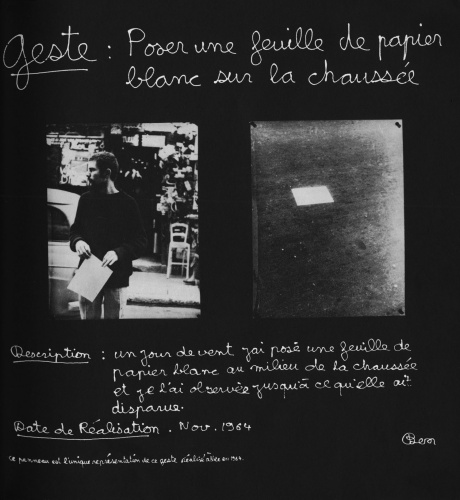 Geste : Poser une feuille de papier
blanc sur la chaussée
Description : un jour de vent j'ai posé une feuille de
papier blanc au milieu de la chaussée
et je l'ai observée jusqu'à ce qu'elle ait
disparue.
Date de Réalisation . Nov. 1964
Ce panneau est l'unique représentation de ce geste réalisé en 1964.